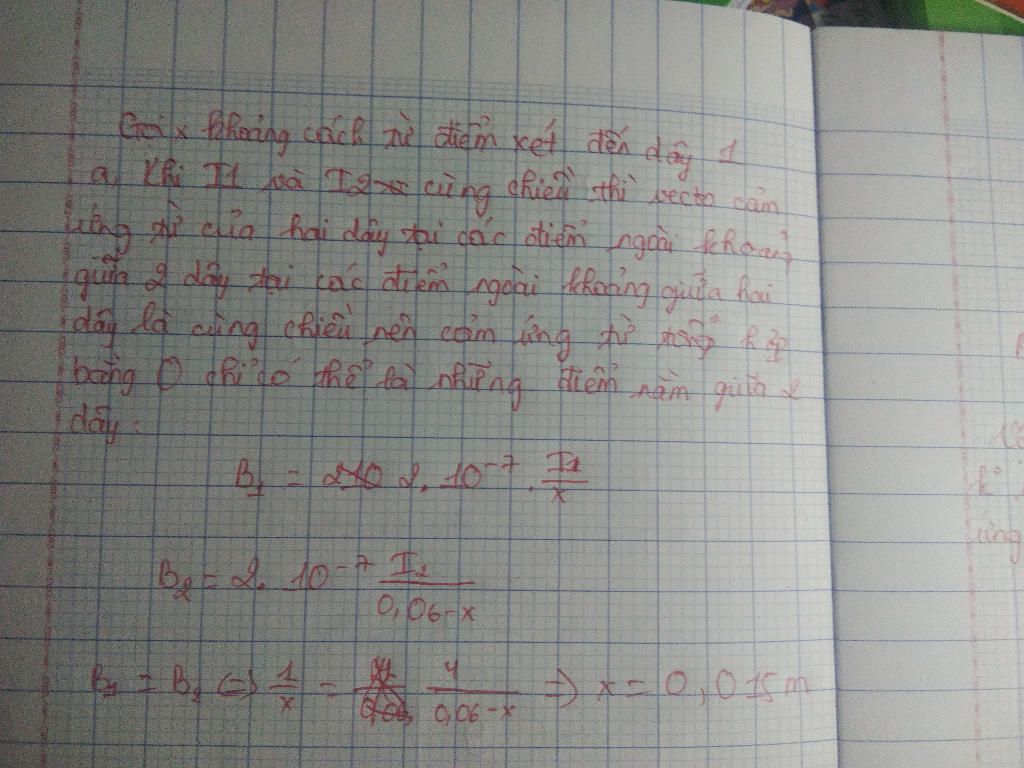 Gọi x khoảng cách từ điểm xét đến dây 1
a, Khi I1 và I2 cùng chiều thì vecto cảm
ứng từ của hai dây tại các điểm ngoài khoảng
giữa 2 dây tại các điểm ngoài khoảng giữa hai
dây là cùng chiều nên cảm ứng từ tổng hợp
bằng 0 chỉ có thể là những điểm nằm giữa 2
dây:
B₁ = 2.10⁻⁷ . I1/x
B₂ = 2. 10⁻⁷ I₂/(0,06-x)
= B₁ <=> 1/x = 4/(0,06-x) => x = 0,015m
ứng